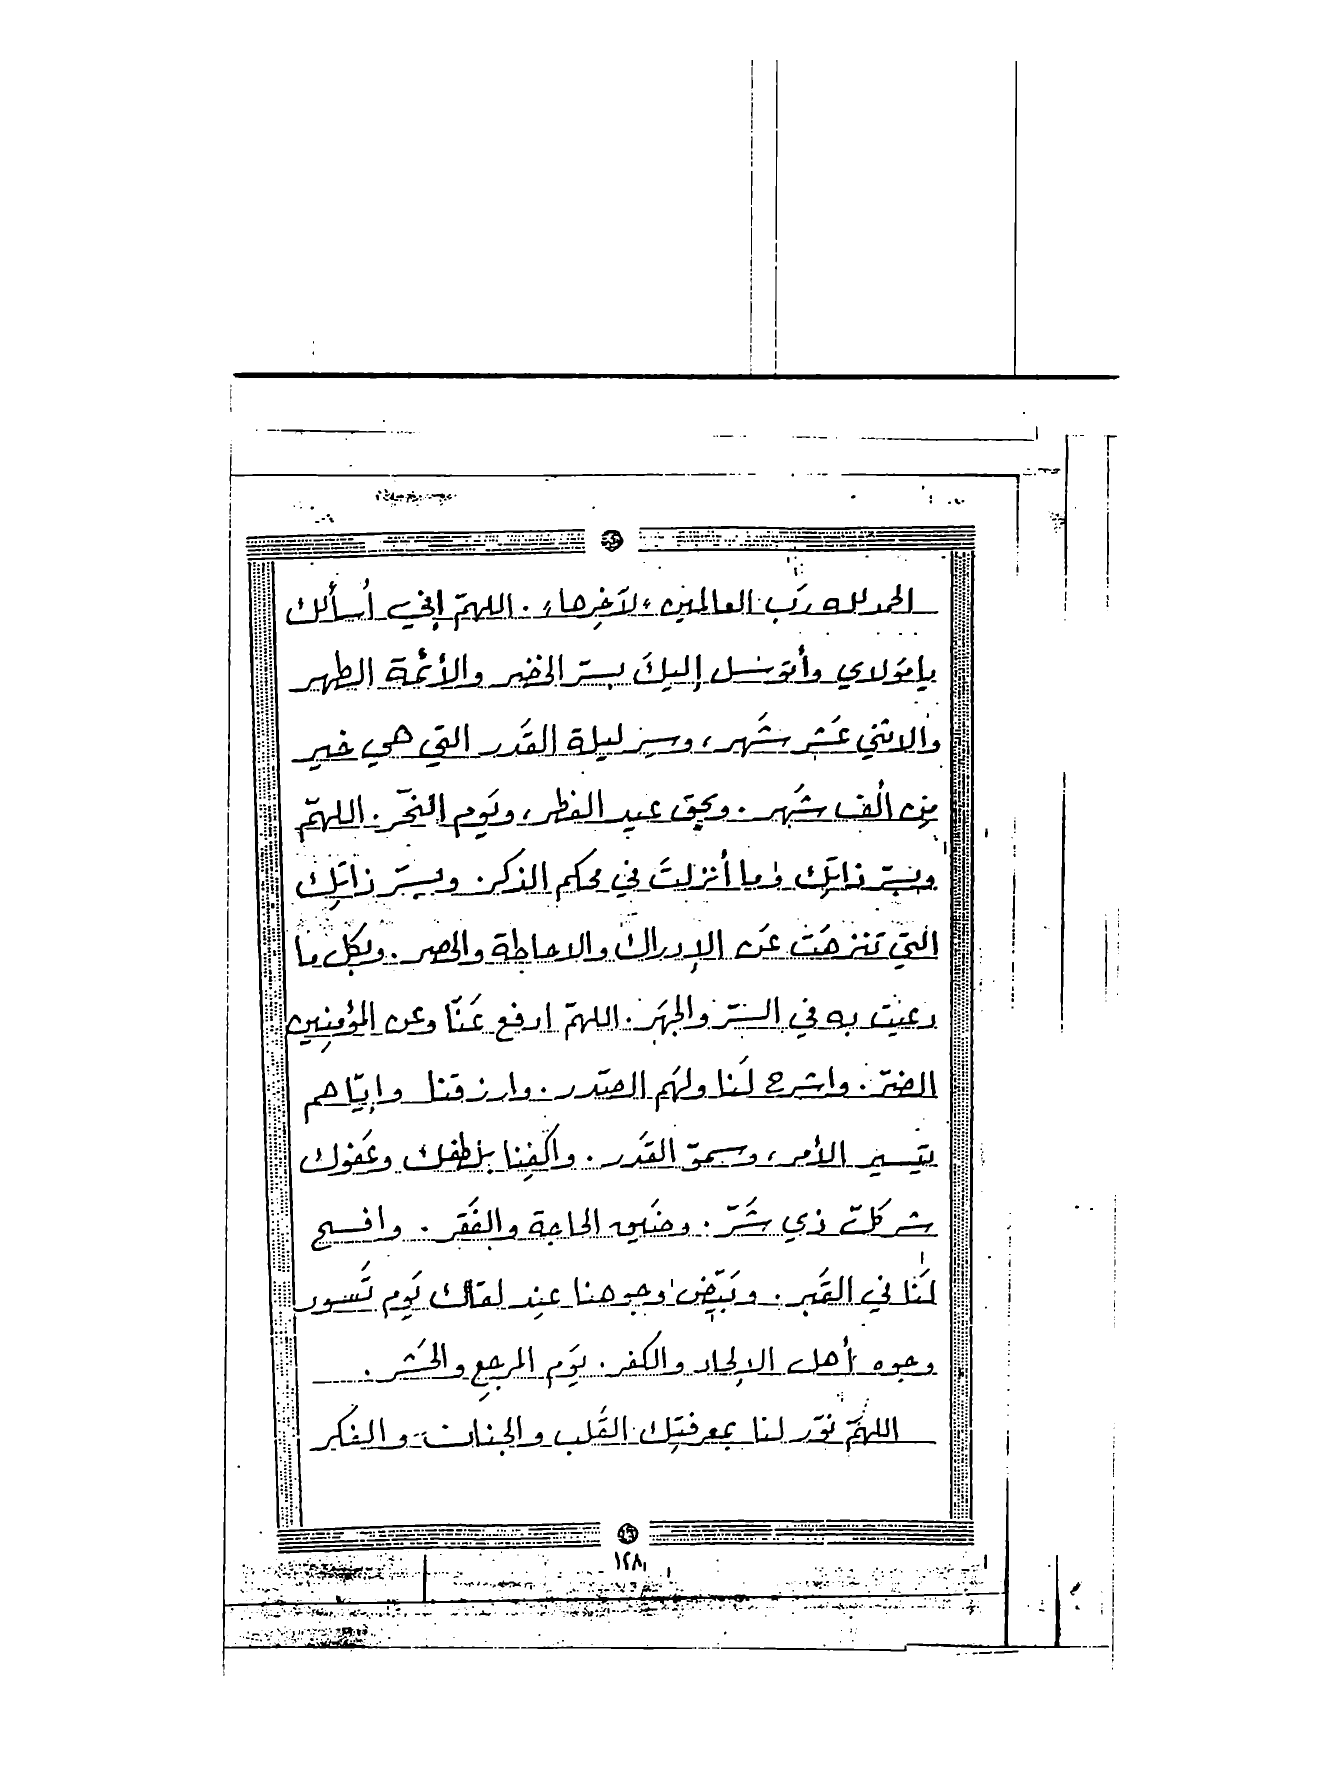 الحمد لله رَب العالمين ؛ لآخِرها ؛ . اللهمّ إني أسألك
يا مَولاي وأتوسَل إليكَ بسرّ الخضر والأئمة الطهر
والاثني عَشر شَهر، وسر ليلة القَدر التي هي خير
مِن ألف شَهر . وبحق عيد الفطر، ويَوم النحَر . اللهمّ
وبسرّ ذاتِك وما أنزلتَ في محكم الذكر . وبسِرّ ذاتِك
التي تنزهَت عَن الإدراك والاحاطة والحصر . وبكل ما
دعيت به في السّر والجهَر . اللهمّ ارفع عَنّا وعن المؤمنِين
الضرّ . واشرح لَنا ولهَم الصّدر . وارزقنا وإيّاهم
تيَسير الأمر، وسموّ القَدر . واكفِنا بلطفك وعَفوك
شر كلّ ذي شَرّ . وضَيق الحاجة والفَقر . وافسح
لنَا في القَبر . وبَيّض وجوهنا عِند لقاك يَوم تَسود
وجوه أهل الإلحاد والكفر . يَوم المرجِع والحَشر .
اللهمّ نوّر لنا بمعرفتِك القَلب والجنان و الفكر
١٢٨